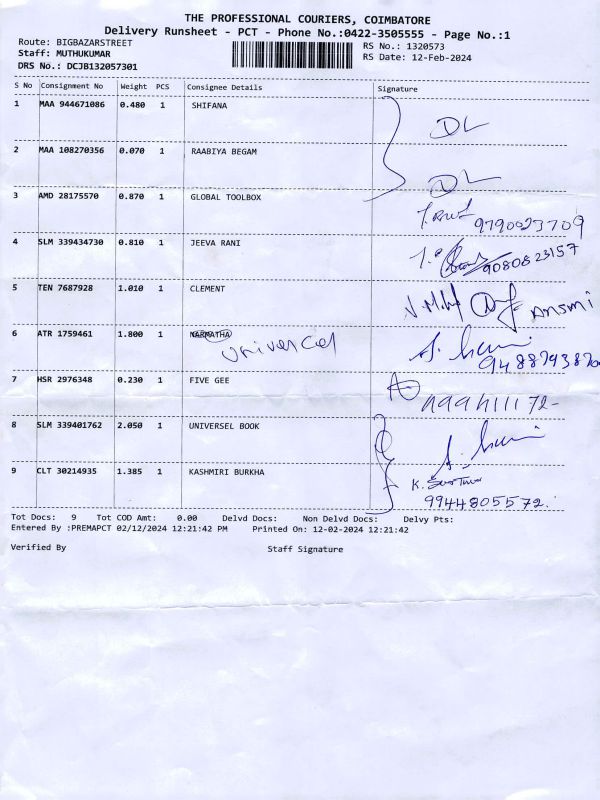 THE PROFESSIONAL COURIERS, COIMBATORE
Delivery Runsheet - PCT - Phone No.:0422-3505555 - Page No.:1
Route: BIGBAZARSTREET
Staff: MUTHUKUMAR
DRS No.: DCJB132057301
RS No.: 1320573
RS Date: 12-Feb-2024
S No Consignment No Weight PCS Consignee Details Signature
1 MAA 944671086 0.480 1 SHIFANA
DL
2 MAA 108270356 0.070 1 RAABIYA BEGAM
DL
3 AMD 28175570 0.870 1 GLOBAL TOOLBOX
9790023709
4 SLM 339434730 0.810 1 JEEVA RANI
9080823157
5 TEN 7687928 1.010 1 CLEMENT
Ansmi
6 ATR 1759461 1.800 1 NARMATHA
Univercel
7 HSR 2976348 0.230 1 FIVE GEE
8 SLM 339401762 2.050 1 UNIVERSEL BOOK
9 CLT 30214935 1.385 1 KASHMIRI BURKHA
9944805572.
Tot Docs: 9 Tot COD Amt: 0.00 Delvd Docs: Non Delvd Docs: Delvy Pts:
Entered By :PREMAPCT 02/12/2024 12:21:42 PM Printed On: 12-02-2024 12:21:42
Verified By Staff Signature